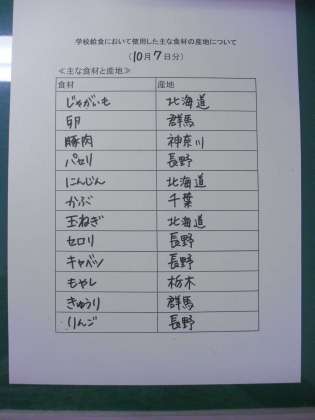 学校給食において使用した主な食材の産地について
（10月7日分）
≪主な食材と産地≫
食材 産地
じゃがいも 北海道
卵 群馬
豚肉 神奈川
パセリ 長野
にんじん 北海道
かぶ 千葉
玉ねぎ 北海道
セロリ 長野
キャベツ 長野
もやし 栃木
きゅうり 群馬
りんご 長野